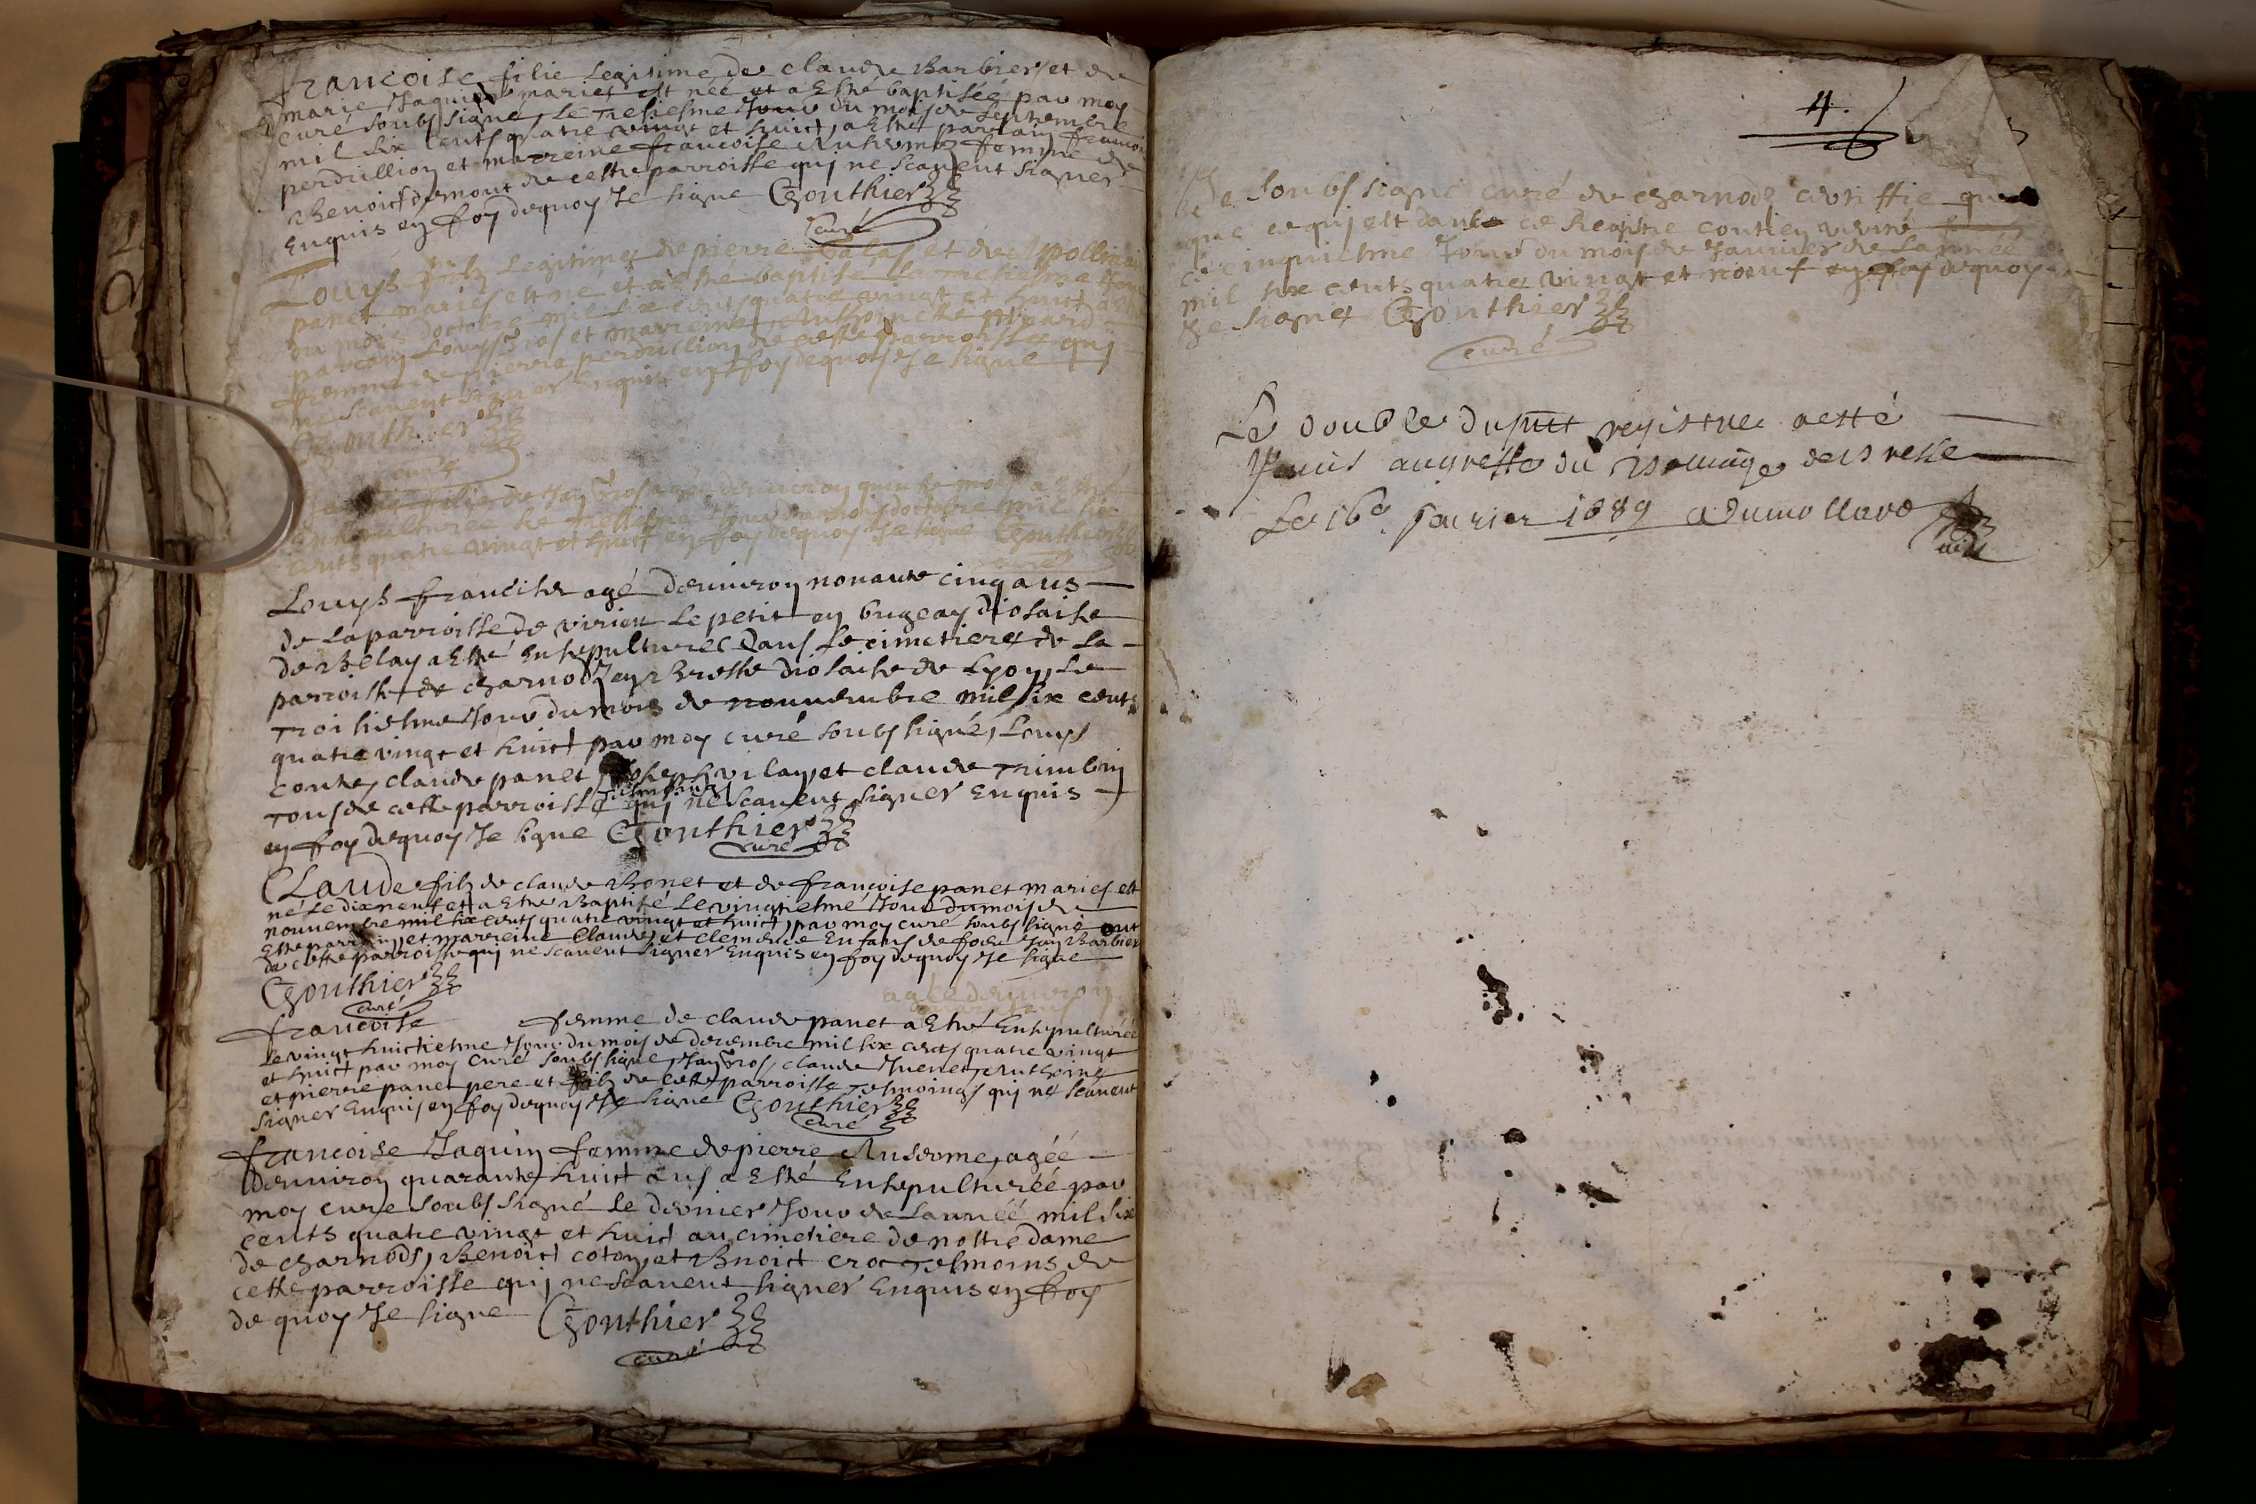 francoise filie legitime de claude Barbier et de
marie Jaquin mariez est neé et a Esté baptiseé par moy
curé soubs signé, le Tresiesme Jour du mois de septembre
mil six cents quatre vingt et huict, a Esté parrain francois
perdrillion et marreine francoise femme de
Benoict demont de cette parroisse qui ne scauent signer
Enquis en foy dequoy Je signe Gonthier
curé
Louys filz legitime de pierre et de
panet mariés est né et a esté baptisé le Jour
du mois doctobre mil six cents quatre vingt et huict a esté
parrain Louys Gros et marreine Anthoinette
femme de pierre perdrillion de cette parroisse qui
ne scauent signer Enquis en foy dequoy Je signe
Gonthier
curé
filie de Jan Gros ageé denuiron quinze mois a Esté
Ensepulturé le Jour du mois doctobre mil six
cents quatre vingt et huict en foy dequoy Je signe Gonthier
Louys francise agé denuiron nonante cinq ans
de la parroisse de virieu le petit en bugeay diosaise
de Belay a Esté Ensepulturé dans le cimetiere de la
parroisse de charnodz en Bresse diosaise de Lyon, le
Troisiesme Jour du mois de nouuembre mil six cents
quatre vingt et huict par moy curé soubs signé, Louys
conte, claude panet Joseph vilay et claude
tous de cette parroisse Tesmoings qui ne scauent signer Enquis
en foy dequoy Je signe Gonthier
curé
Claude filz de claude Bonet et de francoise panet mariés est
né le dixneuf et a Esté Baptisé le vingtiesme Jour du mois de
nouuembre mil six cents quatre vingt et huict, par moy curé soubs signé ont
Esté parrain et marreine Claude et clemence Enfans de Jan Barbier
de cette parroisse qui ne scauent signer Enquis en foy dequoy Je signe
Gonthier
curé
ageé denuiron
francoise femme de claude panet a Esté Ensepultureé
le vingt huictiesme Jour du mois de decembre mil six cents quatre vingt
et huict par moy curé soubs signé, Jan Gros, claude Anthoine
et pierre panet pere et filz de cette parroisse Tesmoings qui ne scauent
signer Enquis en foy dequoy Je signe Gonthier
curé
francoise Jaquin femme de pierre ageé
denuiron quarante huict ans a Esté Ensepultureé par
moy cure soubs signé le dernier Jour de Lanneé mil six
cents quatre vingt et huict au cimetiere de nostre dame
de charnods, Benoict coton et Bnoict croc Tesmoins de
cette parroisse qui ne scauent signer Enquis en foy
de quoy Je signe Gonthier
curé
4.
Je soubs signé curé de charnodz certiffie que
que ce qui est dans ce Registre contien verité
cinquiesme Jour du mois de Januier de Lanneé
mil six cents quatre vingt et noeuf en foy dequoy
Je signe Gonthier
curé
Le double du pnt registre a esté
remis au greffe du Baillage de Bresse
Le 16e feurier 1689 Dumollard